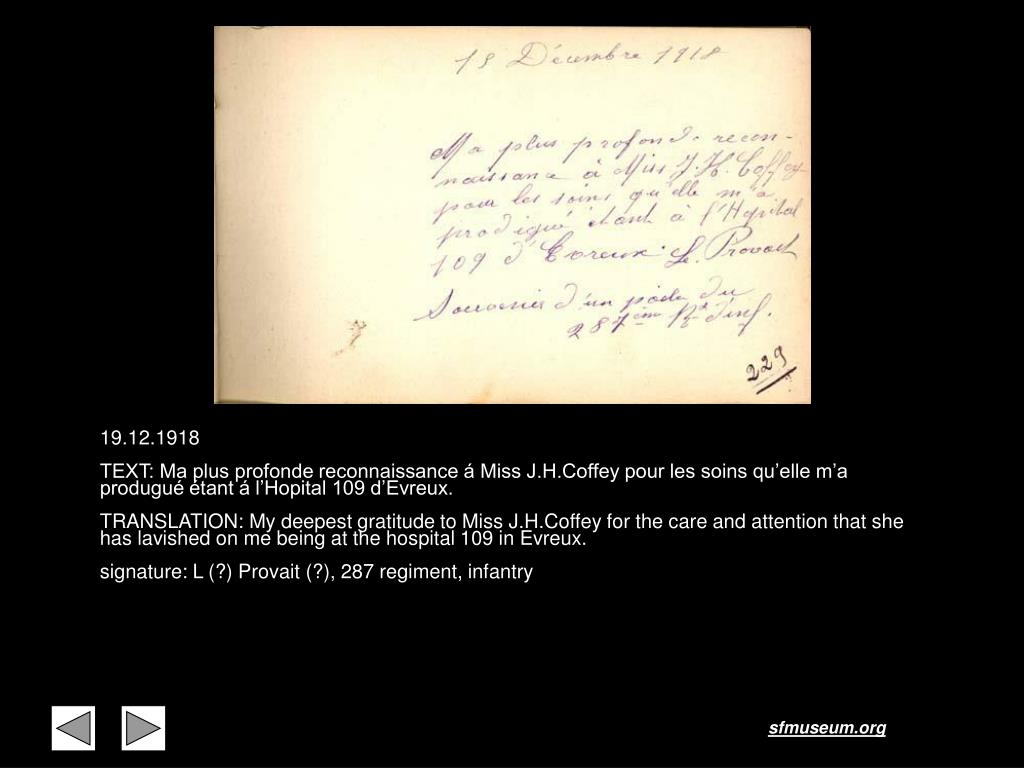 19 Décembre 1918
Ma plus profonde recon-
naissance à Miss J.H. Coffey
pour les soins qu'elle m'a
prodigué étant à l'Hopital
109 d'Evreux.
Souvenir d'un poilu du
287ème Rt d'inf.
229
19.12.1918
TEXT: Ma plus profonde reconnaissance á Miss J.H.Coffey pour les soins qu’elle m’a
produgué étant á l’Hopital 109 d’Evreux.
TRANSLATION: My deepest gratitude to Miss J.H.Coffey for the care and attention that she
has lavished on me being at the hospital 109 in Evreux.
signature: L (?) Provait (?), 287 regiment, infantry
sfmuseum.org